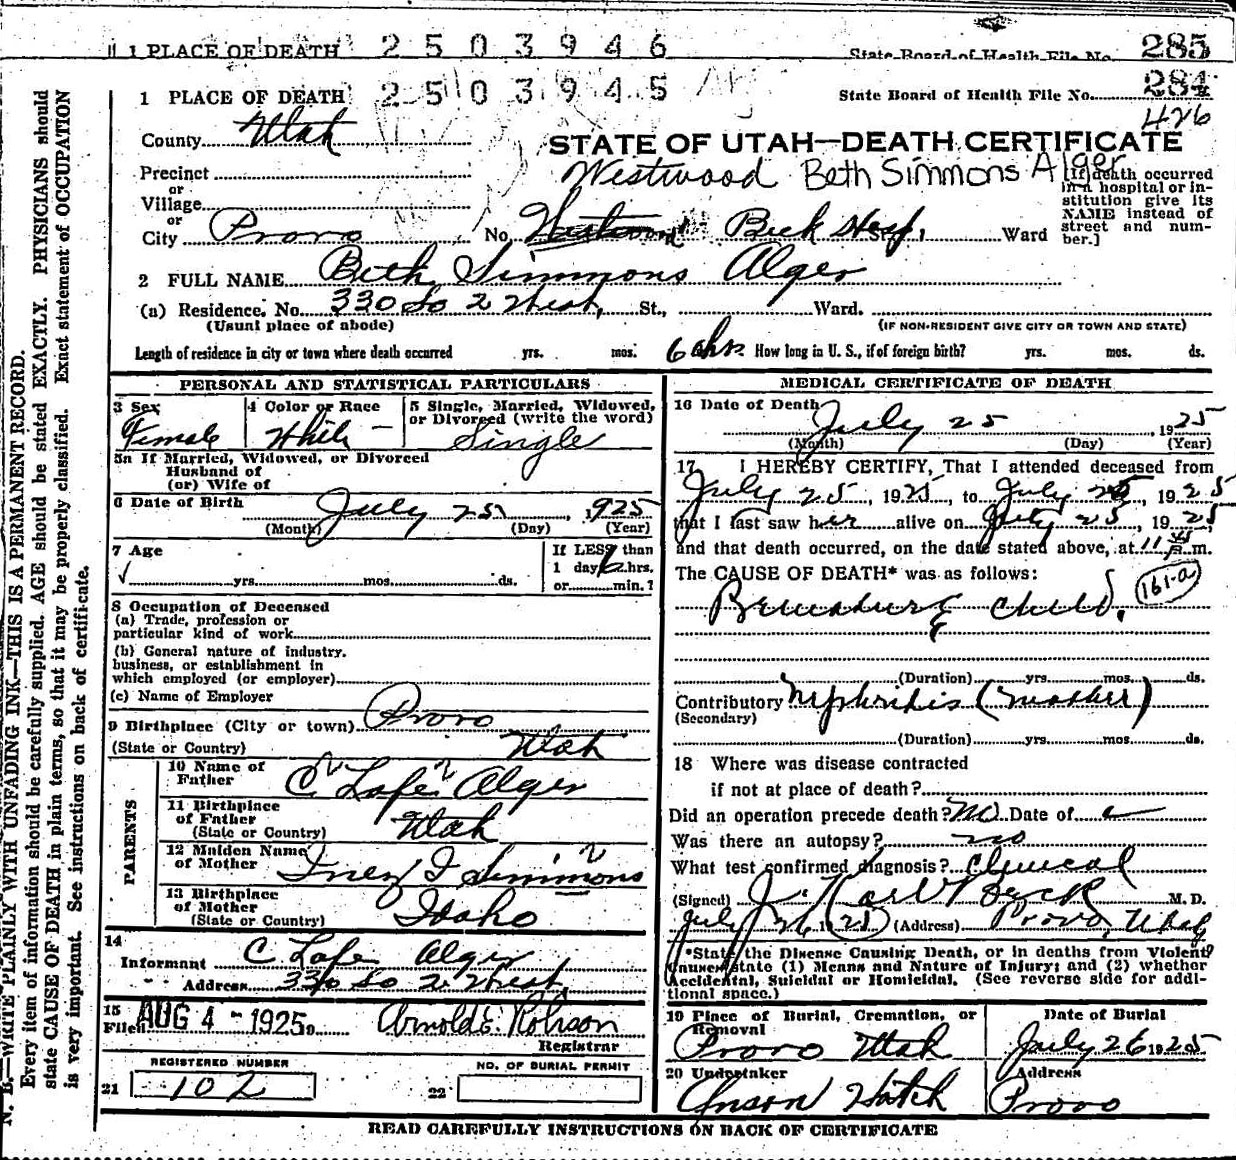 1 PLACE OF DEATH 2503946 State Board of Health File No. 285
1 PLACE OF DEATH 2503945 State Board of Health File No. 284
426
County Utah
STATE OF UTAH—DEATH CERTIFICATE
Precinct
Westwood Beth Simmons Alger
or
Village
or
City Provo No. Westwood Beck Hosp. St., Ward
[If death occurred
in a hospital or in-
stitution give its
NAME instead of
street and num-
ber.]
2 FULL NAME Beth Simmons Alger
(a) Residence. No. 330 So 2 West, St., Ward.
(Usual place of abode) (IF NON-RESIDENT GIVE CITY OR TOWN AND STATE)
Length of residence in city or town where death occurred yrs. mos. 6 hrs. How long in U. S., if of foreign birth? yrs. mos. ds.
PERSONAL AND STATISTICAL PARTICULARS
3 Sex
Female
4 Color or Race
White
5 Single, Married, Widowed,
or Divorced (write the word)
Single
5a If Married, Widowed, or Divorced
Husband of
(or) Wife of
6 Date of Birth
July 25, 1925
(Month) (Day) (Year)
7 Age
yrs. mos. ds.
If LESS than
1 day, hrs.
or min.?
8 Occupation of Deceased
(a) Trade, profession or
particular kind of work
(b) General nature of industry.
business, or establishment in
which employed (or employer)
(c) Name of Employer
9 Birthplace (City or town) Provo
(State or Country) Utah
PARENTS
10 Name of
Father C Lafe Alger
11 Birthplace
of Father
(State or Country) Utah
12 Maiden Name
of Mother Inez I Simmons
13 Birthplace
of Mother
(State or Country) Idaho
14
Informant C Lafe Alger
Address 330 So 2 West,
15
Filed AUG 4 - 1925 Arnold E. Robison
Registrar
REGISTERED NUMBER
21 102
NO. OF BURIAL PERMIT
22
MEDICAL CERTIFICATE OF DEATH
16 Date of Death
July 25 1925
(Month) (Day) (Year)
17 I HEREBY CERTIFY, That I attended deceased from
July 25, 1925, to July 25, 1925
that I last saw her alive on July 25, 1925,
and that death occurred, on the date stated above, at 11 45 m.
The CAUSE OF DEATH* was as follows:
161-a
Premature Child.
(Duration) yrs. mos. ds.
Contributory Nephritis (mother)
(Secondary)
(Duration) yrs. mos. ds.
18 Where was disease contracted
if not at place of death?
Did an operation precede death? No Date of
Was there an autopsy? no
What test confirmed diagnosis? Clinical
(Signed) J. Karl Beck M. D.
July 26 1925 (Address) Provo, Utah
*State the Disease Causing Death, or in deaths from Violent
Causes state (1) Means and Nature of Injury; and (2) whether
Accidental, Suicidal or Homicidal. (See reverse side for addi-
tional space.)
19 Place of Burial, Cremation, or
Removal
Provo Utah
Date of Burial
July 26 1925
20 Undertaker
Anson Hatch
Address
Provo
READ CAREFULLY INSTRUCTIONS ON BACK OF CERTIFICATE
N. B.—WRITE PLAINLY WITH UNFADING INK—THIS IS A PERMANENT RECORD.
Every item of information should be carefully supplied. AGE should be stated EXACTLY. PHYSICIANS should
state CAUSE OF DEATH in plain terms, so that it may be properly classified. Exact statement of OCCUPATION
is very important. See instructions on back of certificate.